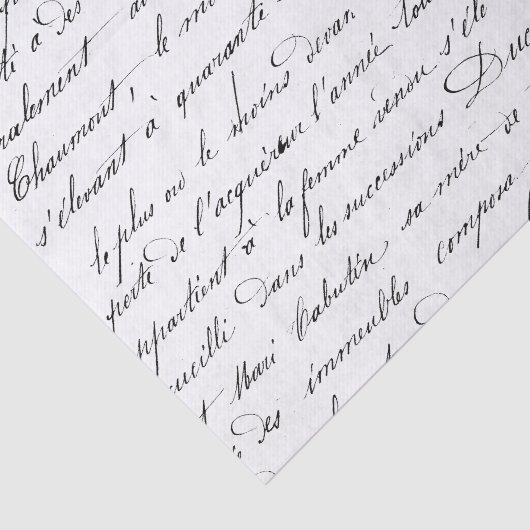 té à des
nalement
Chaumont, le
s'élevant à quarante
le plus ou le moins devan
perte de l'acquéreur l'année
appartient à la femme vendu s'éle
ueilli dans les successions Duc
t Mari Cabutin sa mère de
des immeubles composa